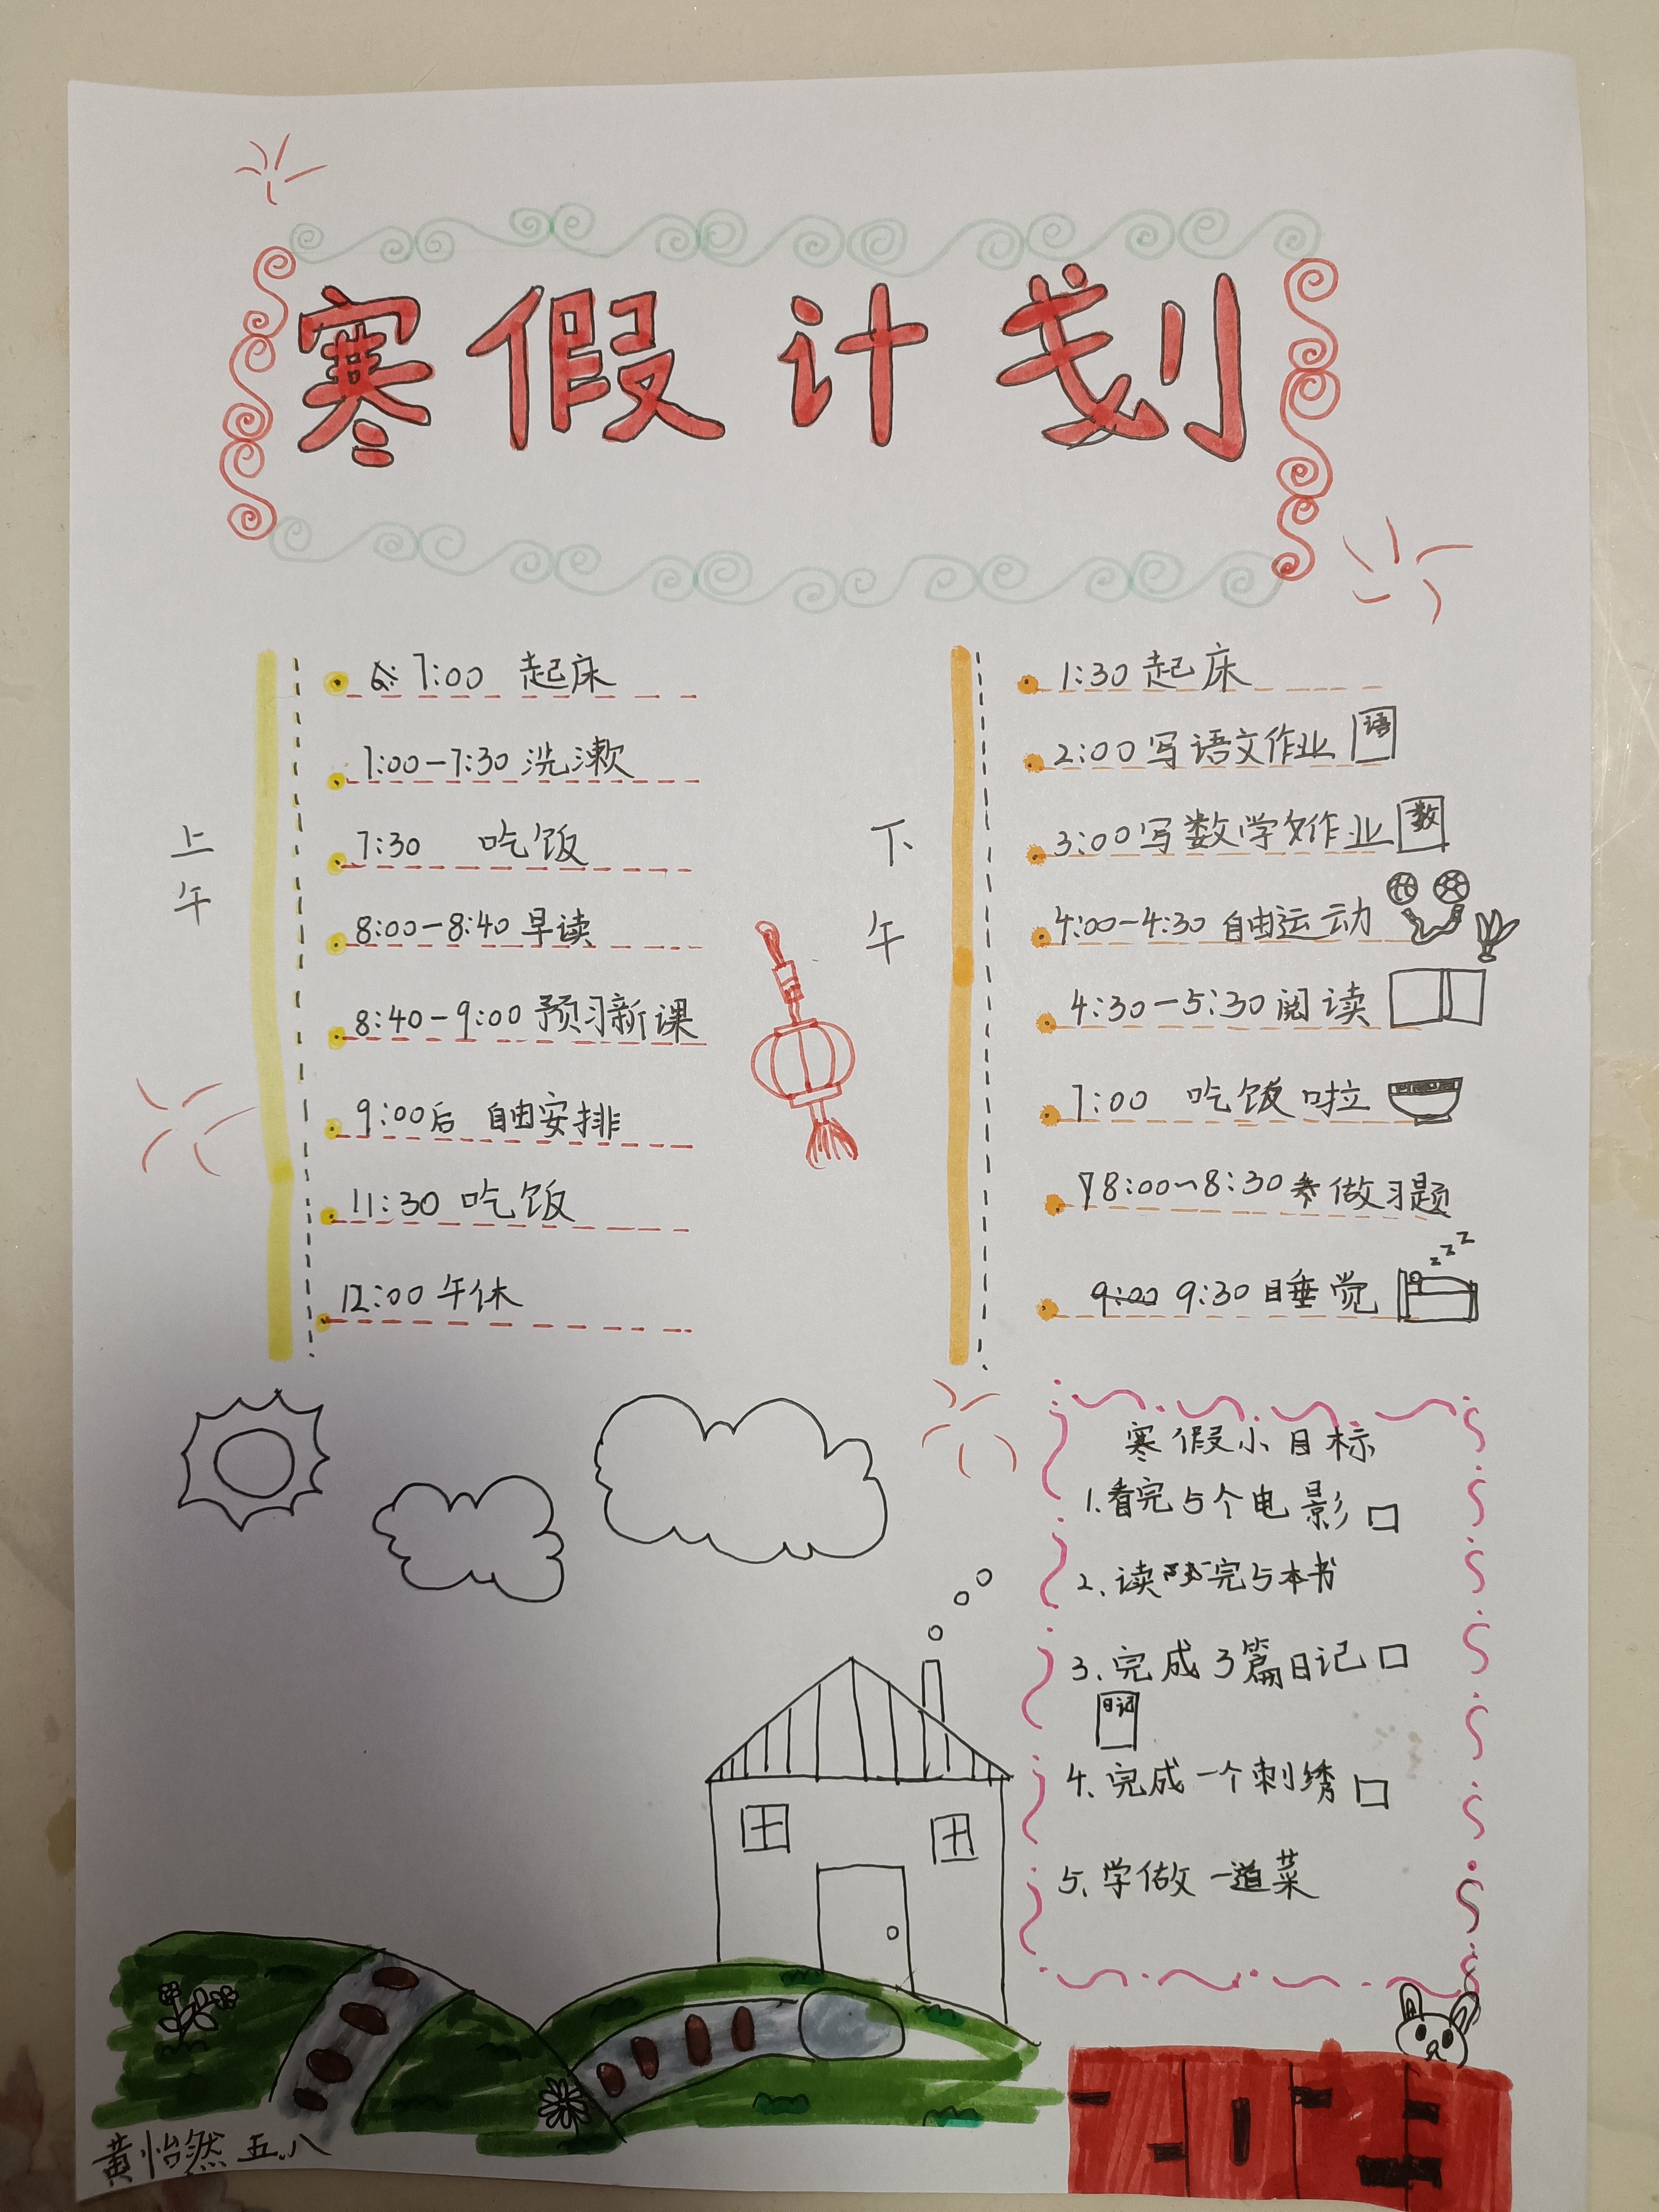 寒假计划
上午
7:00 起床
7:00-7:30 洗漱
7:30 吃饭
8:00-8:40 早读
8:40-9:00 预习新课
9:00后 自由安排
11:30 吃饭
12:00 午休
下午
1:30 起床
2:00 写语文作业 语
3:00 写数学作业 数
4:00-4:30 自由运动
4:30-5:30 阅读
7:00 吃饭啦
8:00~8:30 做习题
9:00 9:30 睡觉
zzz
寒假小目标
1.看完5个电影
2.读完5本书
3.完成3篇日记
日记
4.完成一个刺绣
5.学做一道菜
2023
黄怡然 五.八